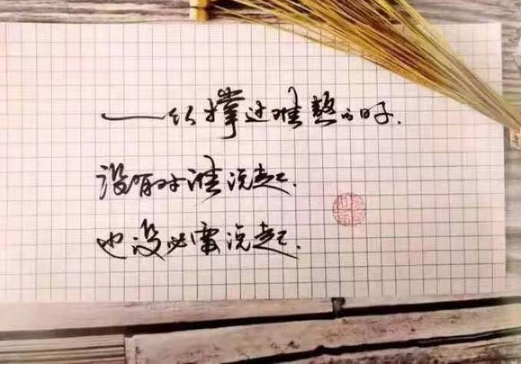 一个人撑过难熬的日子.
没有对谁说起.
也没必需说起.